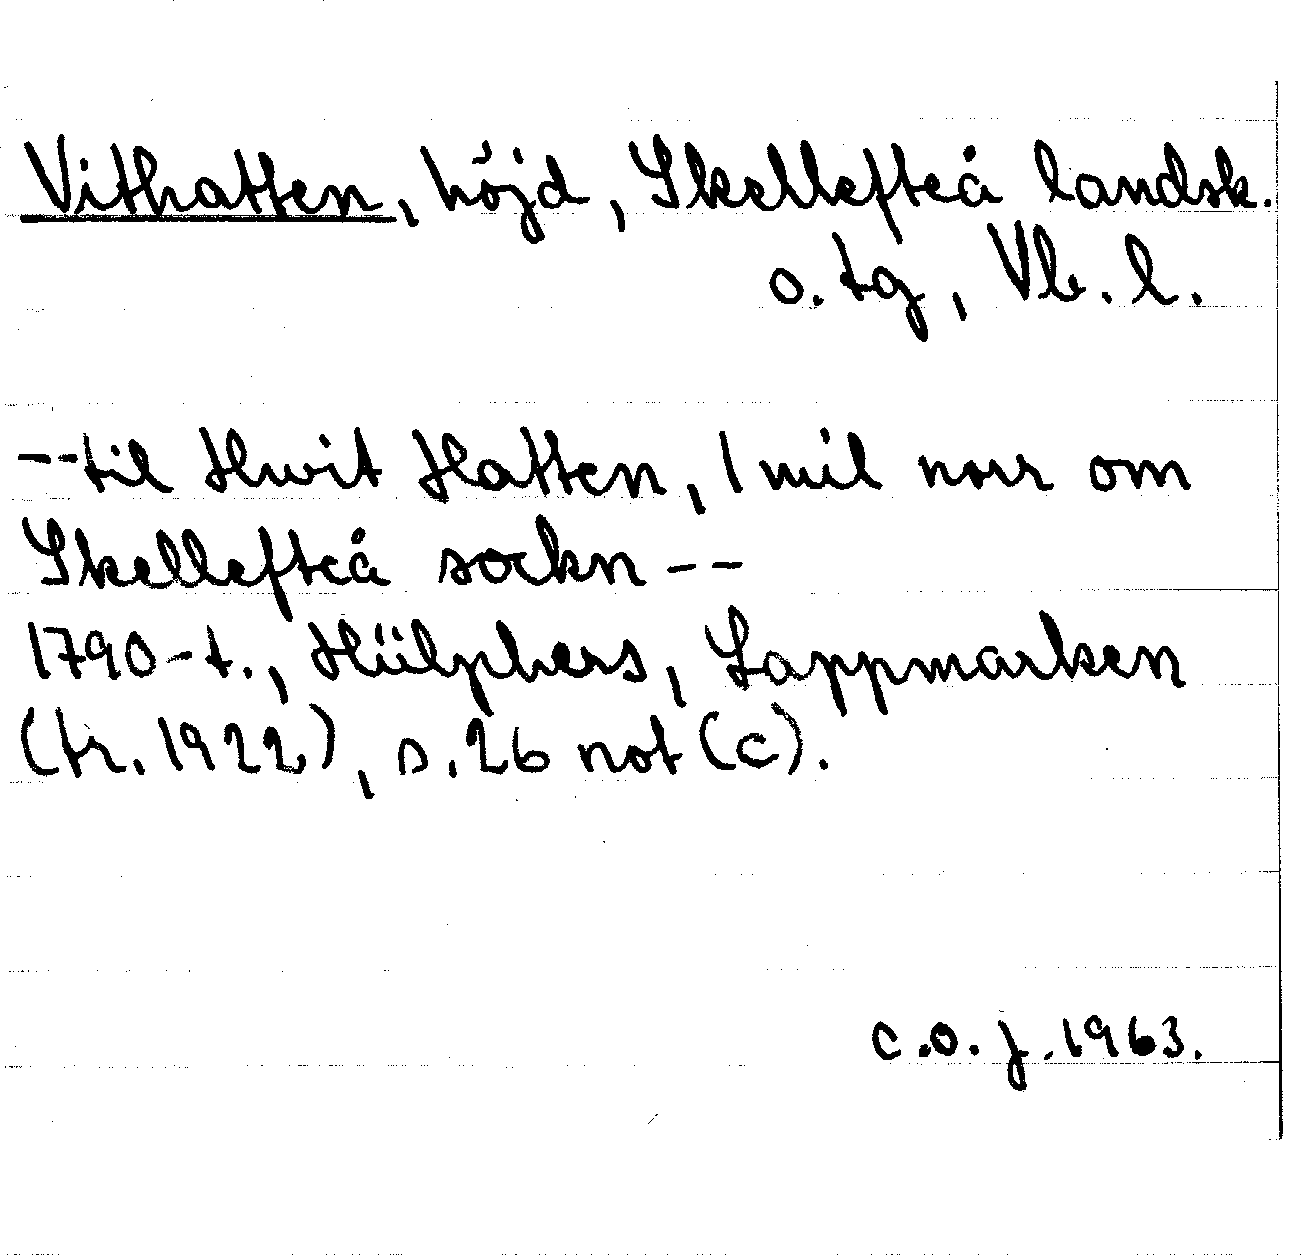 Vithatten, höjd, Skellefteå landsk.
o. tg, Vb. l.
--til Hwit Hatten, 1 mil norr om
Skellefteå sockn--
1790-t., Hülphers, Lappmarken
(tr. 1922), s. 26 not (c).
c.o.j. 1963.